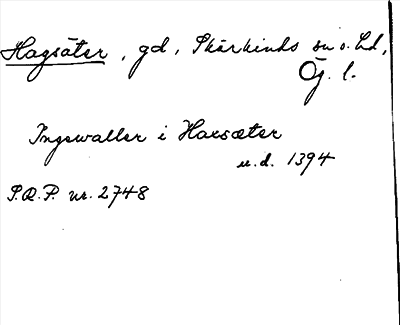 Hagsäter, gd, Skärkinds sn o. hd,
Ög. l.
Ingewaller i Haxsæter
u.d. 1394
S.R.P. nr. 2748